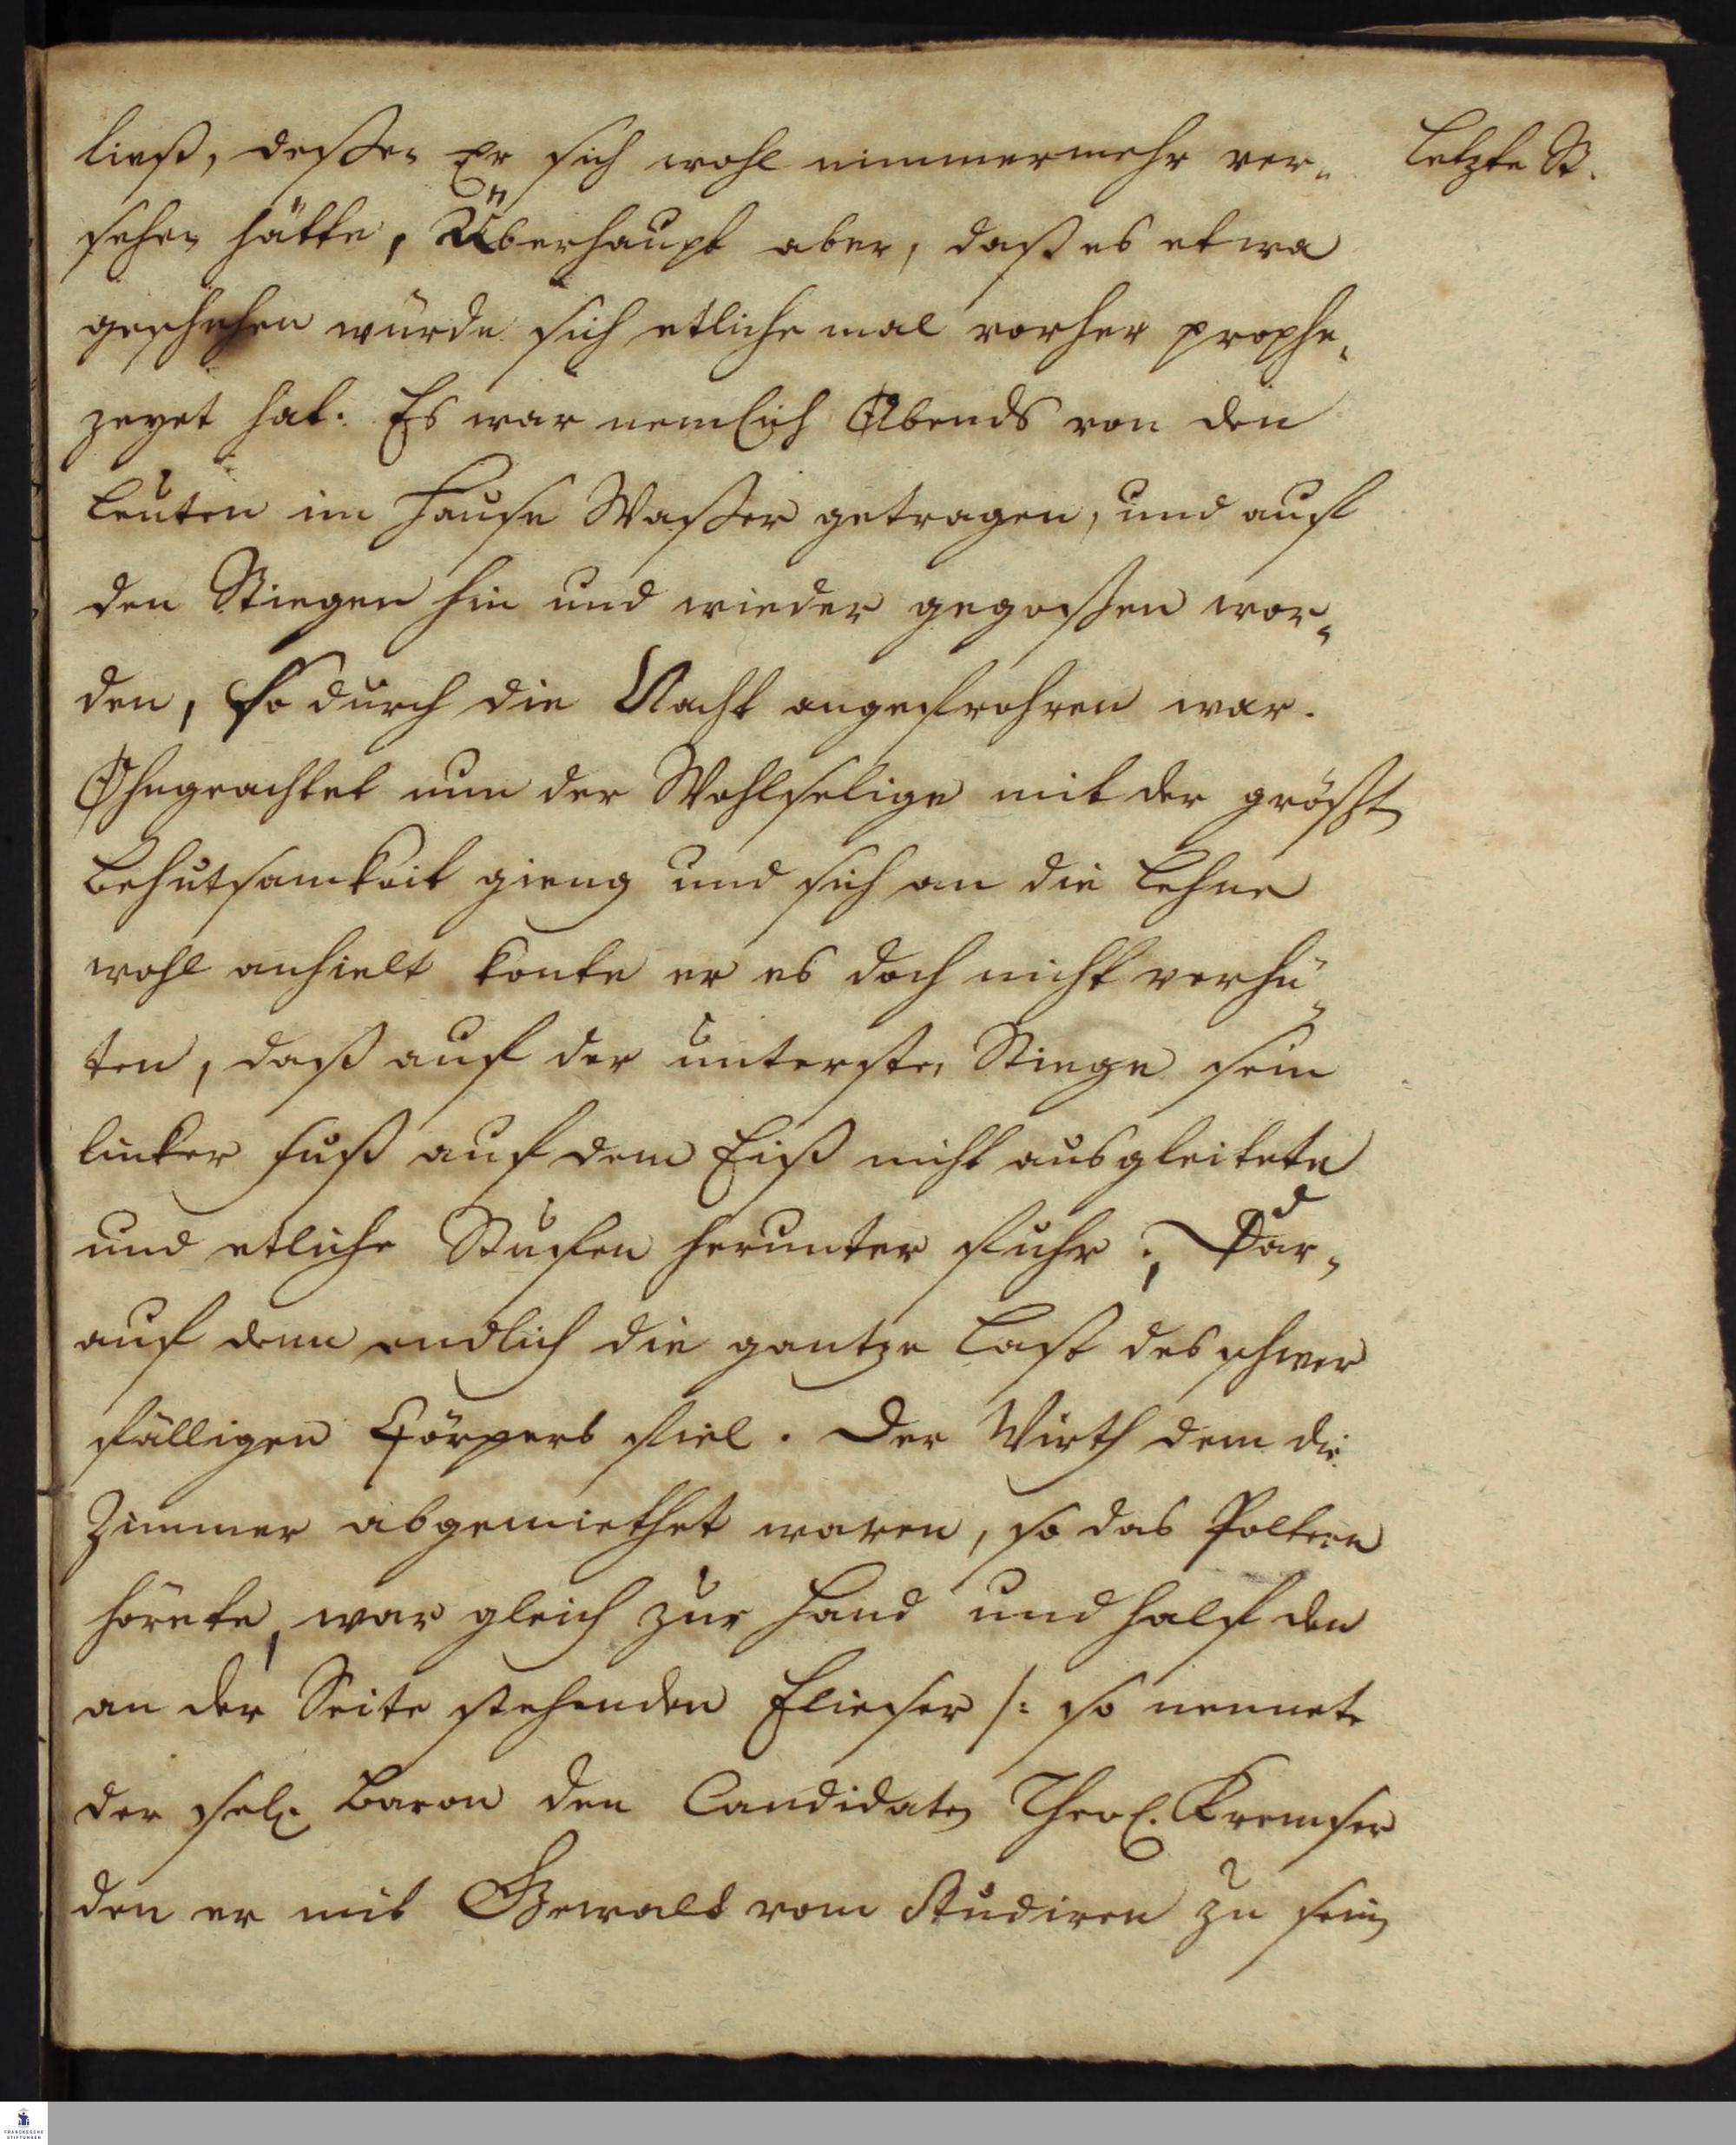 ließ, deßen Er sich wohl nimmermehr ver-
sehen hätte, Überhaupt aber, daß es etwa
geschehen würde sich etliche mal vorher prophe-
zeyet hat. Es war nemlich Abends von den
Leuten im Hause Waßer getragen, und auf
den Stiegen hin und wieder gegoßen wor-
den, so durch die Nacht angefrohren war.
Ohngeachtet nun der Wohlselige mit der größt
Behutsamkeit gieng und sich an die Lehne
wohl anhielt konte er es doch nicht verhü-
ten, daß auf der untersten Stiege sein
linker Fuß auf dem Eiß nicht ausgleitete
und etliche Stufen herunter fuhr; Dar-
auf denn endlich die gantze Last des schwer
fälligen Cörpers fiel. Der Wirth dem die
Zimmer abgemiethet waren, so das Poltern
hörete, war gleich zur Hand und half den
an der Seite stehenden Elieser /: so nennete
der sel. Baron den Candidaten Theol. Kremser
den er mit Gewalt vom Studiren zu sein
Letzte St.
FRANCKESCHE
STIFTUNGEN